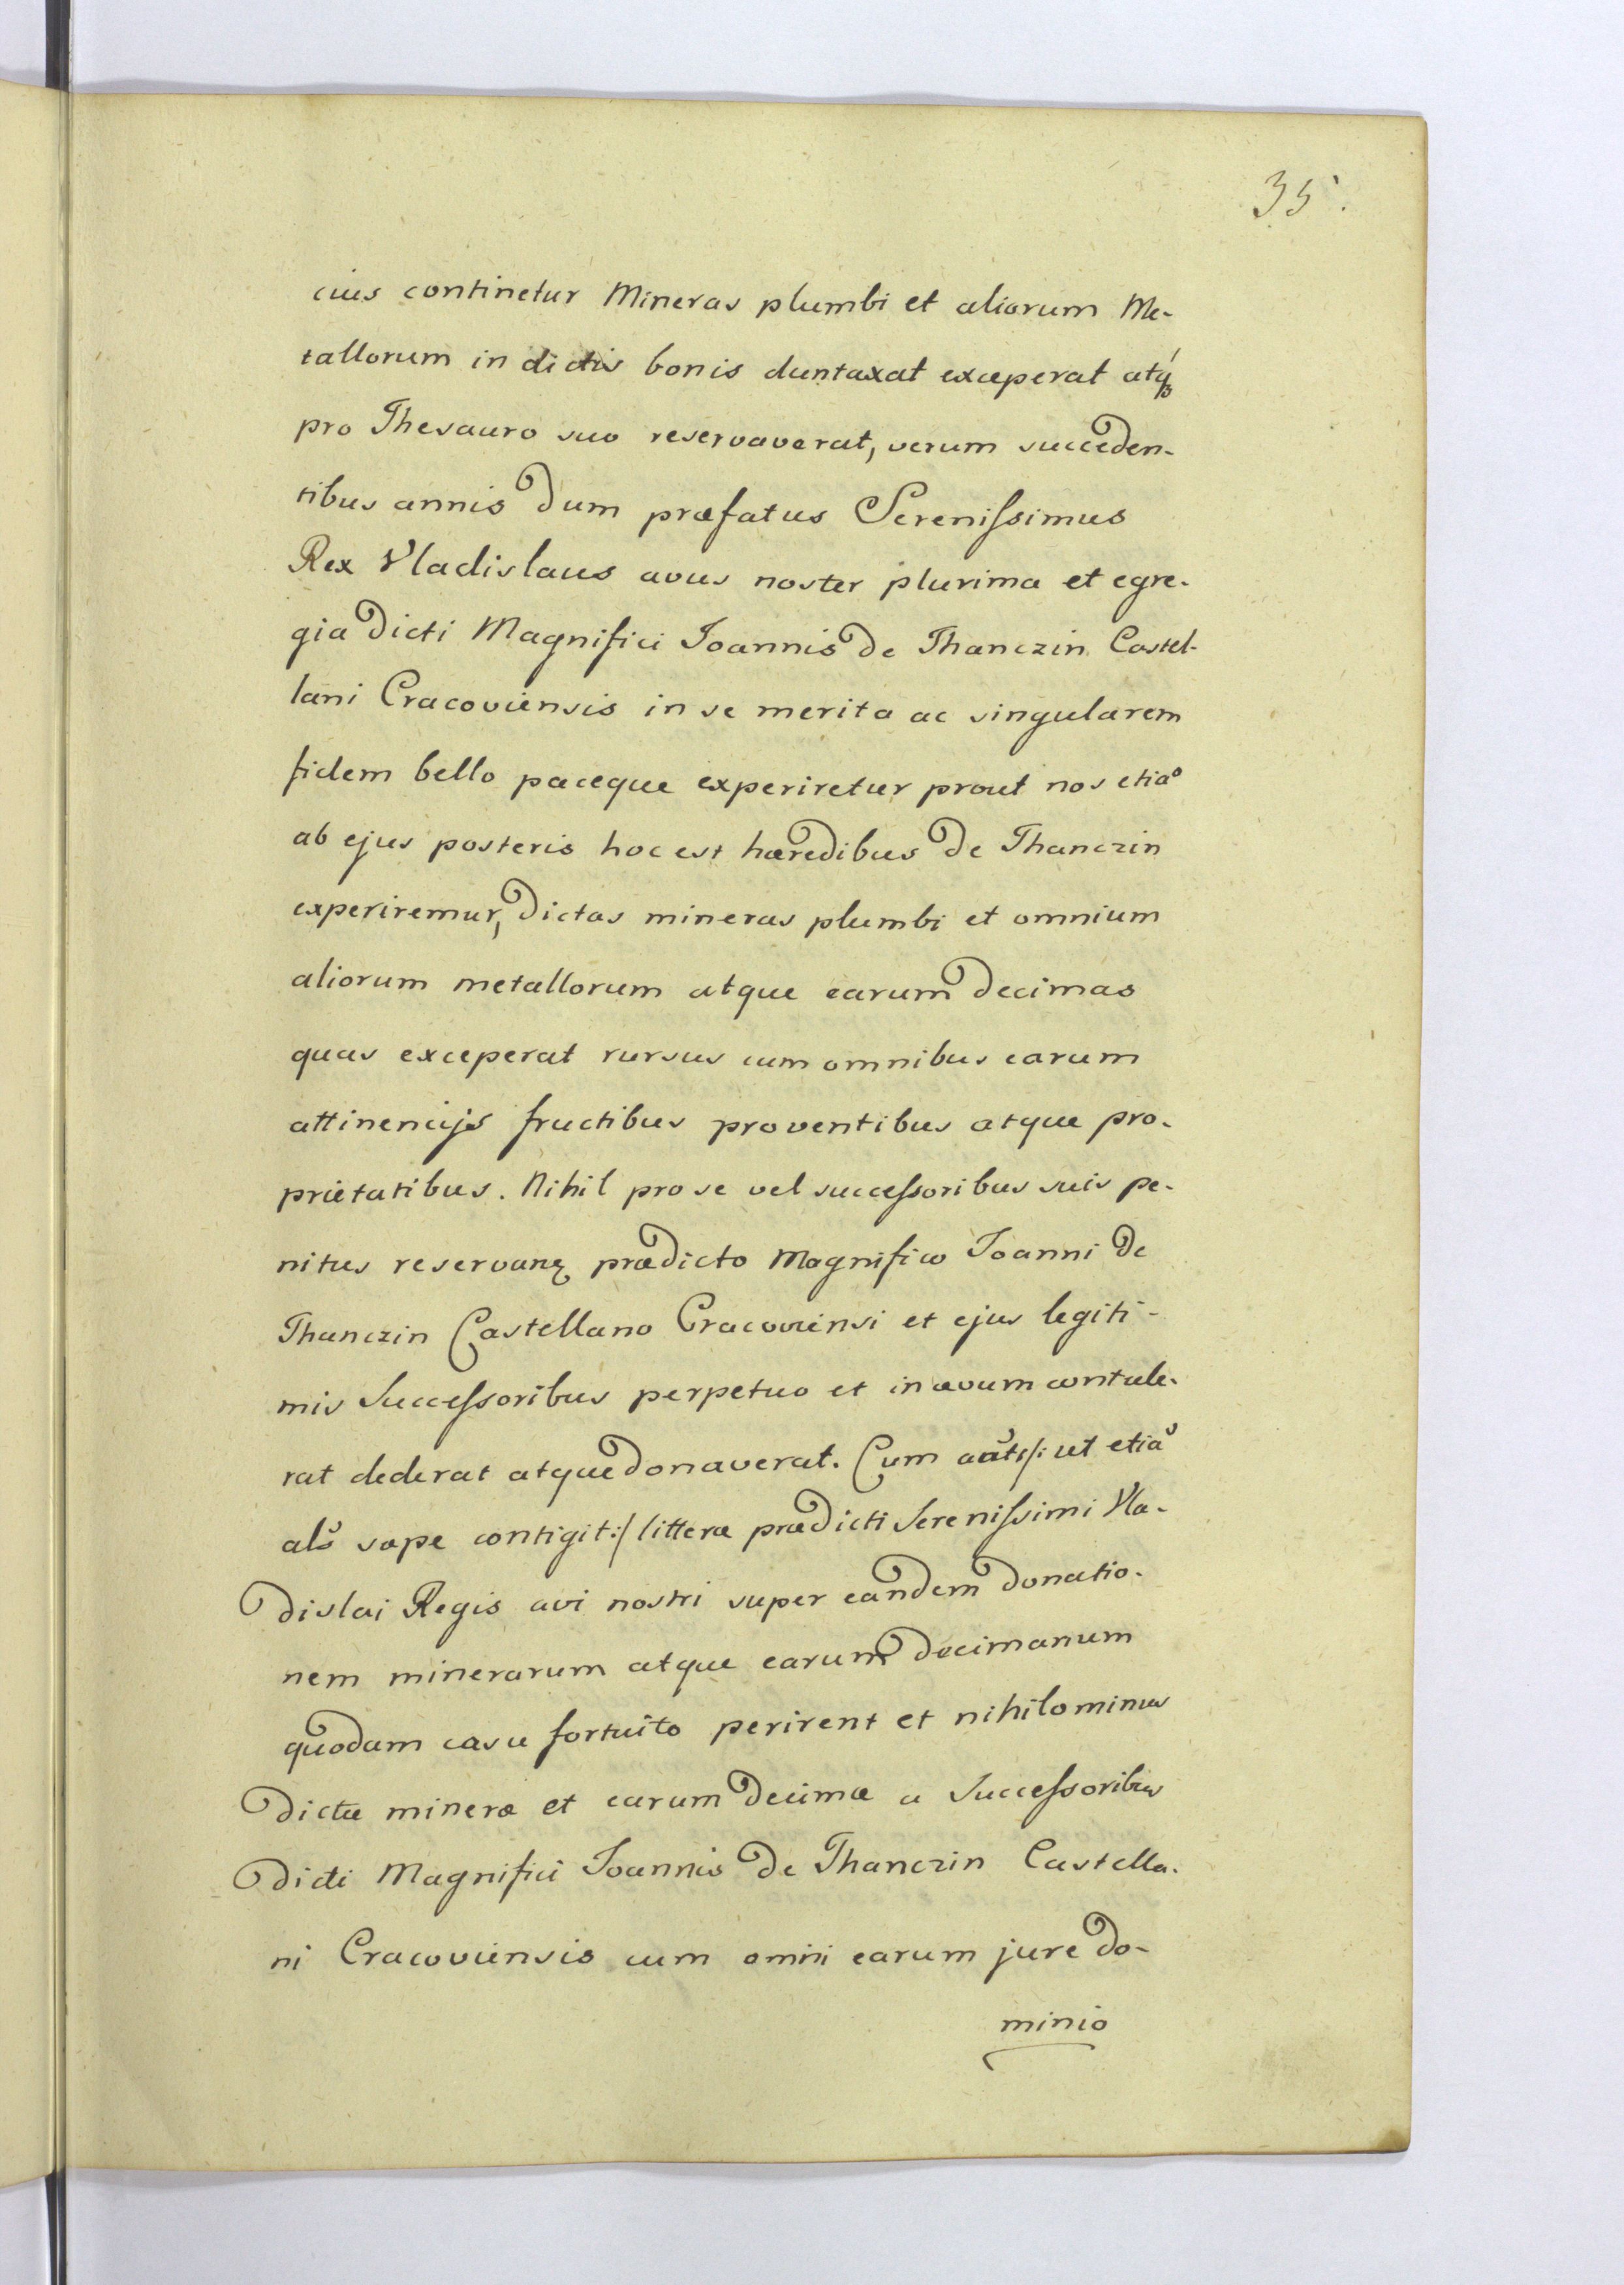 35.
cius continetur Mineras plumbi et aliorum Me-
tallorum in dictis bonis duntaxat exceperat atq́
pro Thesauro suo reservaverat, verum succeden-
tibus annis dum præfatus Serenissimus
Rex Vladislaus avus noster plurima et egre-
gia dicti Magnifici Joannis de Thanczin Castel-
lani Cracoviensis in se merita ac singularem
fidem bello paceque experiretur prout nos etiã
ab ejus posteris hoc est hæredibus de Thanczin
experiremur, dictas mineras plumbi et omnium
aliorum metallorum atque earum decimas
quas exceperat rursus cum omnibus earum
attinencijs fructibus proventibus atque pro-
prietatibus. Nihil pro se vel successoribus suis pe-
nitus reservanꝫ prædicto Magnifico Joanni de
Thanczin Castellano Cracoviensi et ejus legiti-
mis Successoribus perpetuo et in ævum contule-
rat dederat atque donaverat. Cum aũt /: ut etiã
als̃ sæpe contigit :/ litteræ prædicti Serenissimi Vla-
dislai Regis avi nostri super eandem donatio-
nem minerarum atque earum decimarum
quodam casu fortuito perirent et nihilominus
dictæ mineræ et earum decimæ a Successoribus
dicti Magnifici Joannis de Thanczin Castella-
ni Cracoviensis cum omni earum jure do-
minio